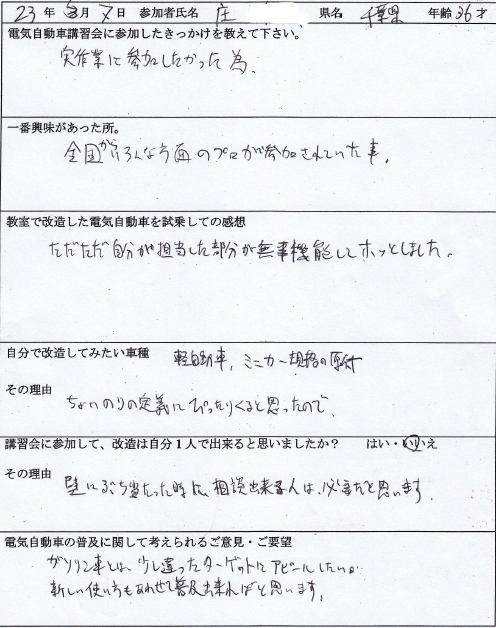 23 年 3月 7日 参加者氏名 庄 県名 千葉県 年齢 36 才
電気自動車講習会に参加したきっかけを教えて下さい。
実作業に参加したかった為、
一番興味があった所。
全国からいろんな方面のプロが参加されていた事。
教室で改造した電気自動車を試乗しての感想
ただただ自分が担当した部分が無事機能してホッとしました。
自分で改造してみたい車種 軽自動車、ミニカー規格の原付
その理由 ちょいのりの定義にぴったりくると思ったので、
講習会に参加して、改造は自分1人で出来ると思いましたか? はい・いいえ
その理由 壁にぶち当たった時は、相談出来る人は、必要だと思います。
電気自動車の普及に関して考えられるご意見・ご要望
ガソリン車とは、少し違ったターゲットにアピールしたいか
新しい使い方もあわせて普及出来ればと思います。